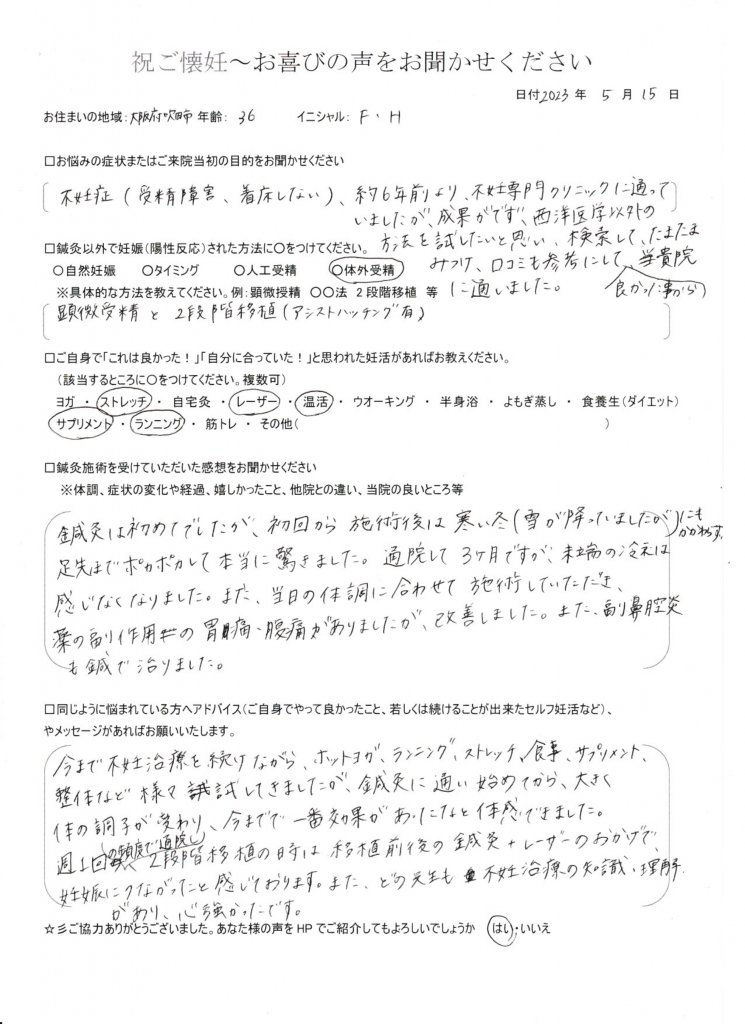 祝ご懐妊～お喜びの声をお聞かせください
日付2023年 5月 15日
お住まいの地域：大阪府吹田市 年齢： 36 イニシャル： F・H
□お悩みの症状またはご来院当初の目的をお聞かせください
不妊症（受精障害、着床しない）、約6年前より、不妊専門クリニックに通って
いましたが、成果がです、西洋医学以外の
方法を試したいと思い、検索して、たまたま
みつけ、口コミも参考にして、貴院
（良かった事から）
に通いました。
□鍼灸以外で妊娠（陽性反応）された方法に○をつけてください。
○自然妊娠 ○タイミング ○人工受精 ○体外受精
※具体的な方法を教えてください。例：顕微授精 ○○法 2段階移植 等
顕微受精と 2段階移植（アシストハッチング有）
□ご自身で「これは良かった！」「自分に合っていた！」と思われた妊活があればお教えください。
（該当するところに○をつけてください。複数可）
ヨガ ・ ストレッチ ・ 自宅灸 ・ レーザー ・ 温活 ・ ウオーキング ・ 半身浴 ・ よもぎ蒸し ・ 食養生（ダイエット）
サプリメント ・ ランニング ・ 筋トレ ・ その他（ ）
□鍼灸施術を受けていただいた感想をお聞かせください
※体調、症状の変化や経過、嬉しかったこと、他院との違い、当院の良いところ等
鍼灸は初めてでしたが、初回から 施術後は 寒い冬（雪が降っていましたが）にもかかわらず、
足先までポカポカして本当に驚きました。通院して3ヶ月ですが、末端の冷えは
感じなくなりました。また、当日の体調に合わせて 施術していただき、
薬の副作用の胃痛・腹痛がありましたが、改善しました。また、副鼻腔炎
も鍼で治りました。
□同じように悩まれている方へアドバイス（ご自身でやって良かったこと、若しくは続けることが出来たセルフ妊活など）、
やメッセージがあればお願いいたします。
今まで不妊治療を続けながら、ホットヨガ、ランニング、ストレッチ、食事、サプリメント、
整体など様々試してきましたが、鍼灸に通い始めてから、大きく
体の調子が変わり、今までで一番効果があったなと体感できました。
週1回の頻度で通院し、2段階移植の時は 移植前後の鍼灸＋レーザーのおかげで、
妊娠につながったと感じております。また、どの先生も 不妊治療の知識・理解
があり、心強かったです。
☆彡ご協力ありがとうございました。あなた様の声をHPでご紹介してもよろしいでしょうか はい・いいえ